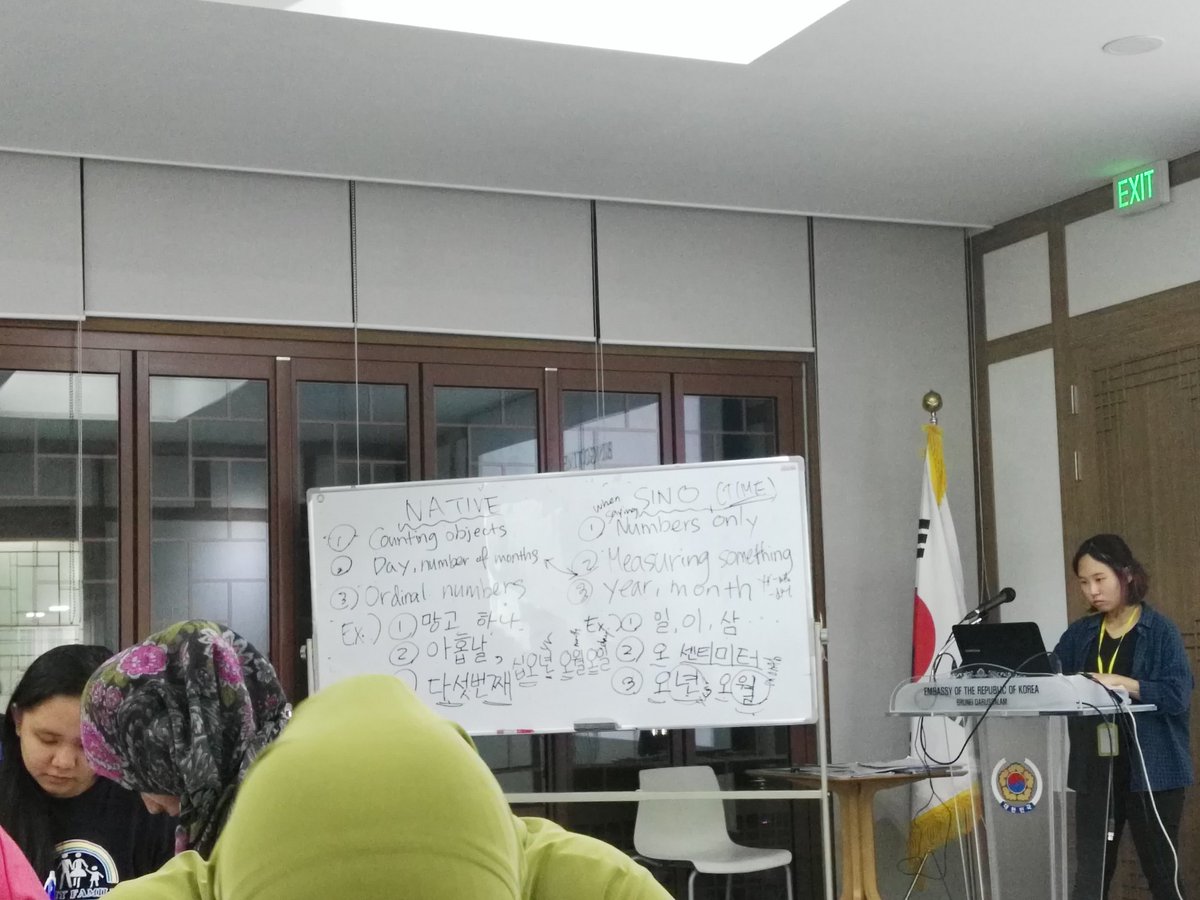 NATIVE
① Counting objects
② Day, number of months
③ Ordinal numbers
Ex.) ① 망고 하나
② 아홉날,
다섯번째
when saying SINO (TIME)
① Numbers only
② Measuring something
③ Year, month
Ex. ① 일, 이, 삼 ...
② 오 센티미터
③ 오년, 오월
EXIT
EMBASSY OF THE REPUBLIC OF KOREA
BRUNEI DARUSSALAM
대한민국